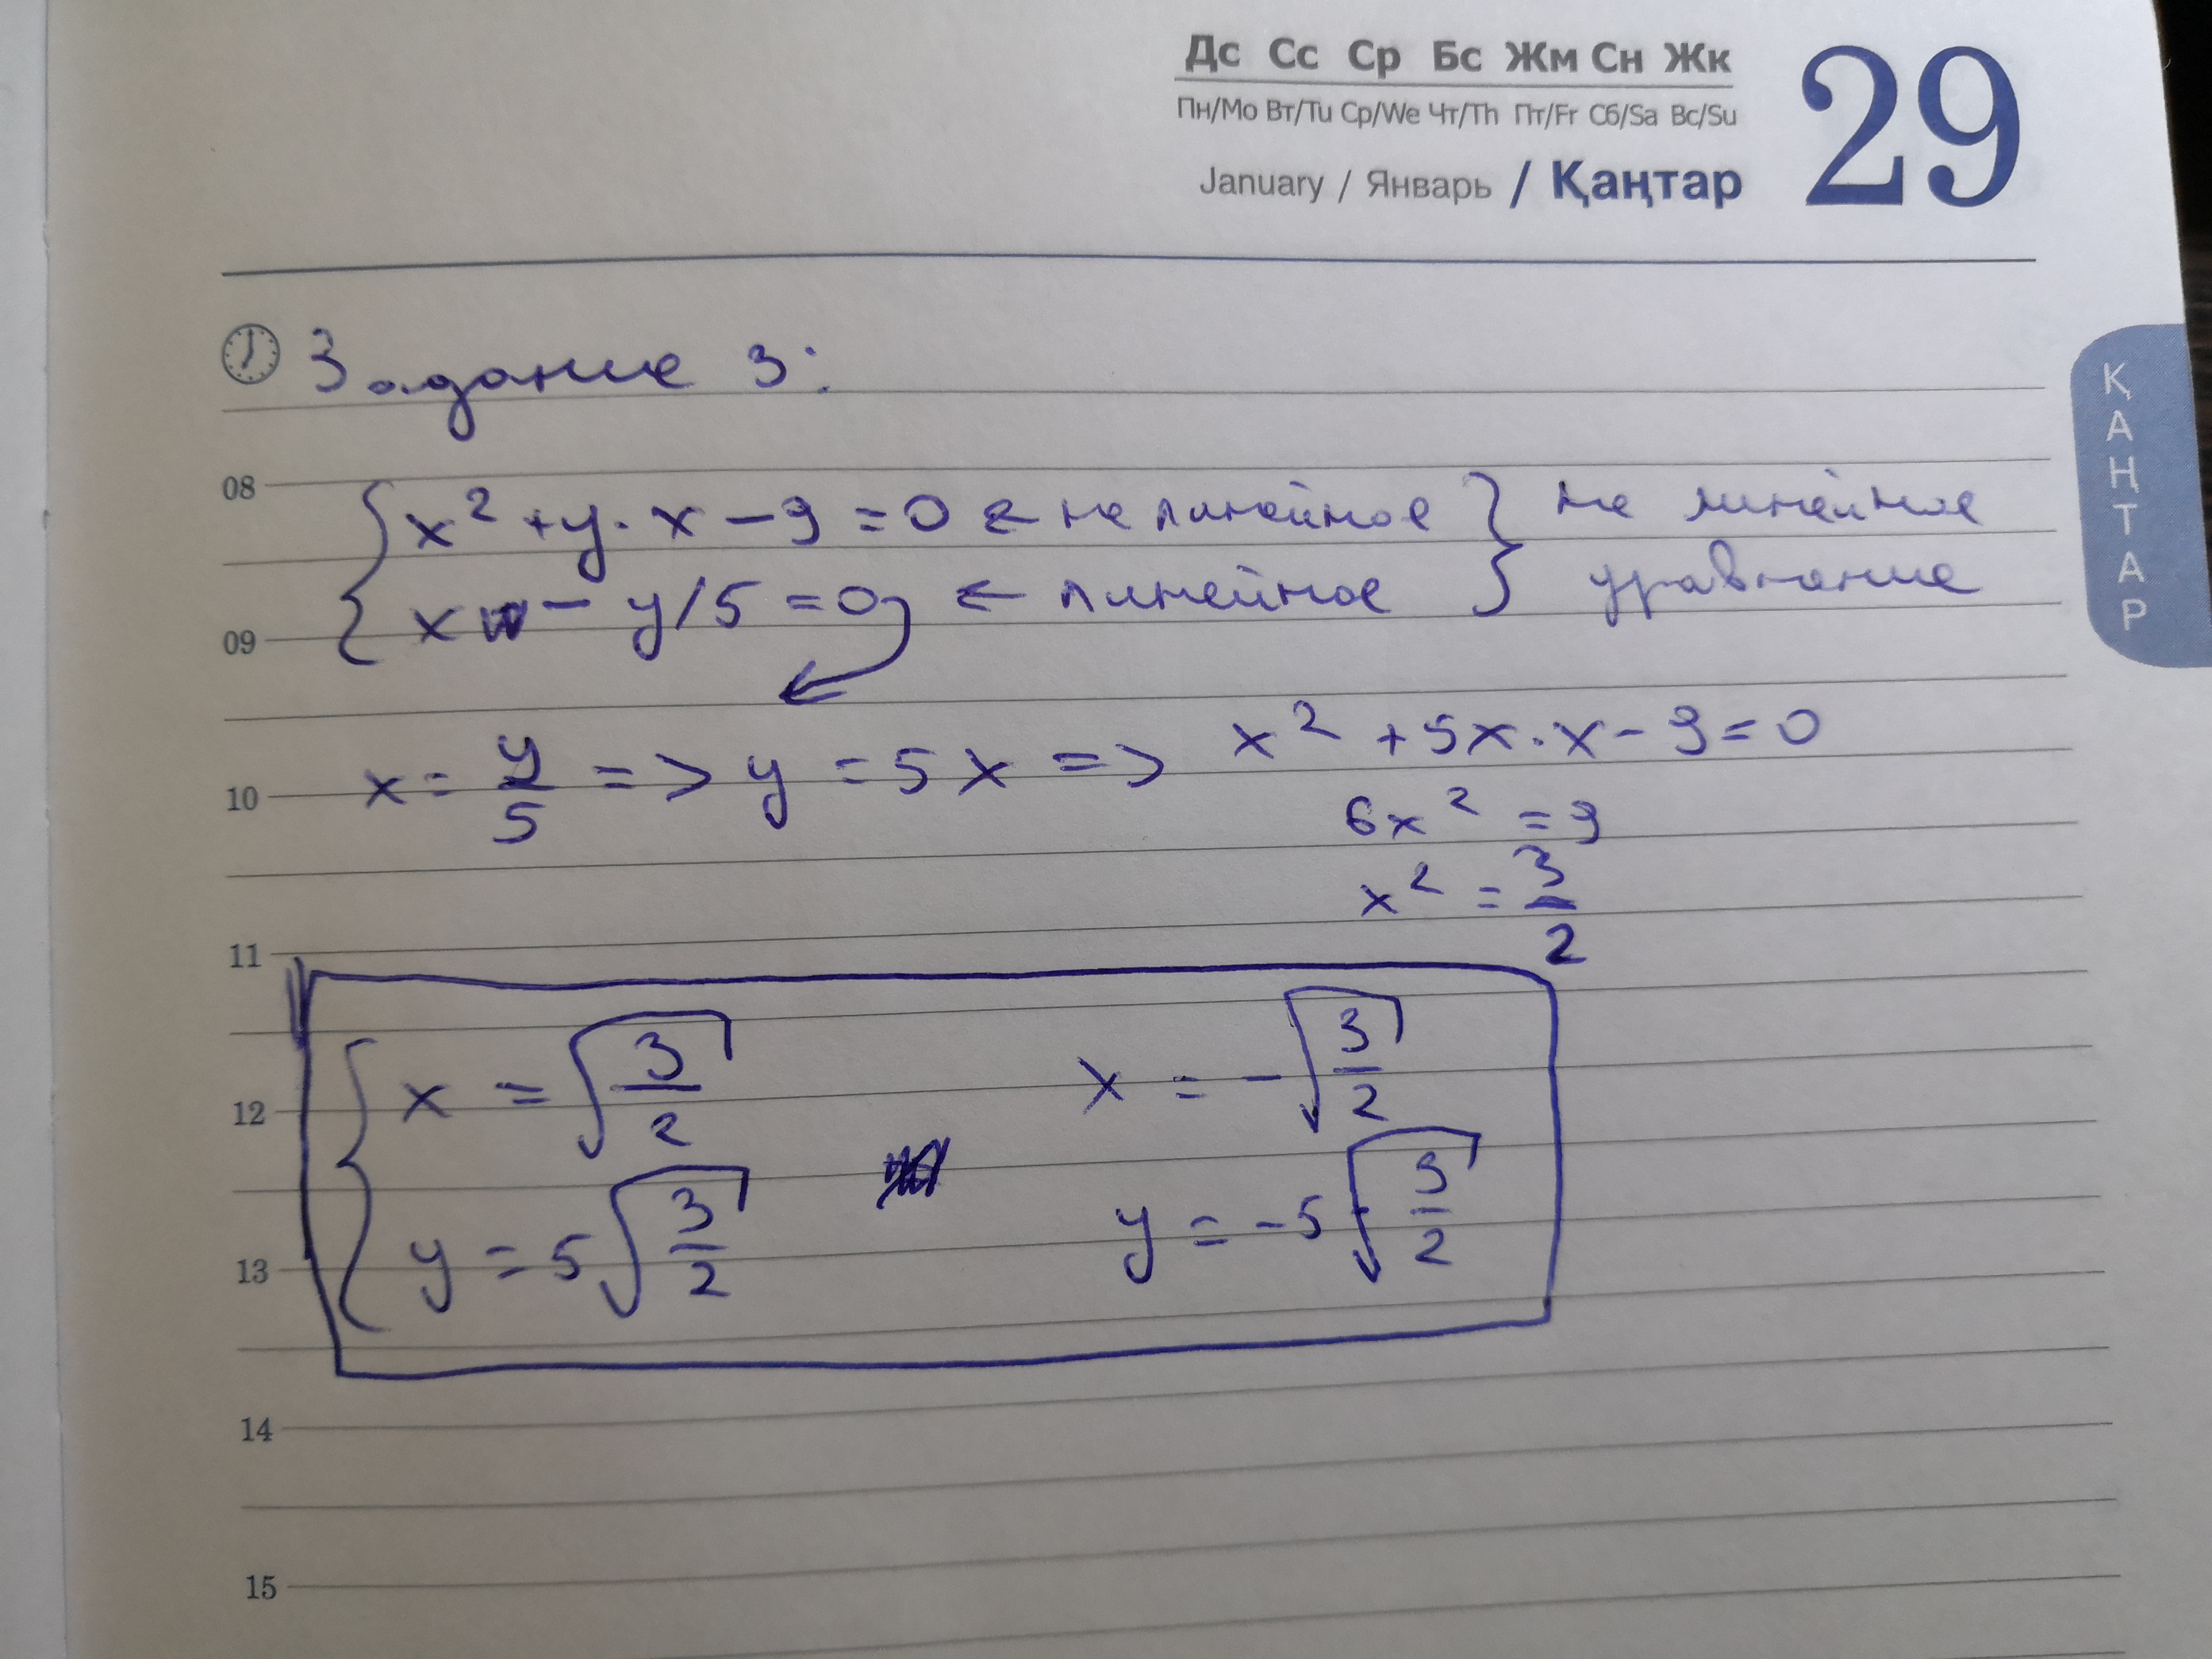 Дс Сс Ср Бс Жм Сн Жк
Пн/Mo Вт/Tu Ср/We Чт/Th Пт/Fr Сб/Sa Вс/Su
January / Январь / Қаңтар 29
ҚАҢТАР
Задание 3:
08
x² + y · x − 9 = 0 ← не линейное } не линейное
x − y/5 = 0 ← линейное } уравнение
09
x = y/5 => y = 5x => x² + 5x · x − 9 = 0
10
6x² = 9
x² = 3/2
11
x = √3/2 x = −√3/2
12
y = 5√3/2 y = −5√3/2
13
14
15